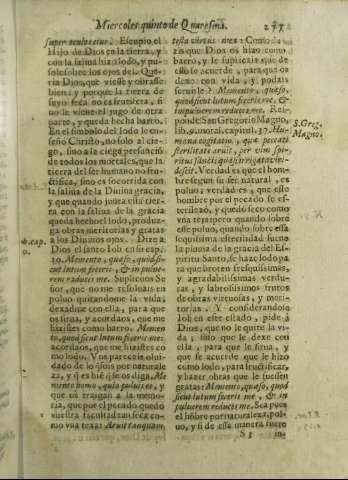 Miercoles quinto de Quaresma. 277
super oculos eius? Escupio el
Hijo de Dios en la tierra, y
con la saliua hizo lodo, y pu
solo sobre los ojos del.
ria Dios, que viesse y obrasse
bien: y porque la tierra de
suyo seca no es frutifera, si
no le viene el jugo de otra
parte, y queda hecha barro.
En el simbolo del lodo le en
seño Christo, no solo al cie-
go, sino a la ciega
de todos los mortales, que la
tierra del ser humano no fru
ctifica, sino es socorrida con
la saliua de la Diuina gracia,
y que quando junta essa tier
ra con la saliua de la gracia
queda hecho el lodo, produzga
obras meritorias y gratas
a los Diuinos ojos. Dize a
Dios el santo Iob en su capi.
10. Memento, quæso, quòd si-
cut lutum feceris, & in pulue-
rem reduces me. Suplicoos Se
ñor, que no me resoluais en
poluo quitandome la vida,
dexadme con ella, para que
os sirua, y acordaos, que me
hizistes como barro. Memen
to, quòd sicut lutum feceris me:
acordaos, que me hizistes co
mo lodo. Vos pareceis oluí
dado de lo que sois por naturale
za, y es bie que se os diga, Me
mento homo, quia puluis es, y
que os traigan a la memo-
ria, que por el pecado quedò
vuestra facultad tan seca co-
mo vna texa: Aruit tanquam
testa virtus mea: Como da
is que Dios os hizo como
barro, y le suplicais que de
ello se acuerde, para que os
dexe con vida, y podais
seruirle? Memento, quæso,
quòd sicut lutum feceris me, &
in puluerem reduces me. Res
ponde San Gregorio Magno,
lib. 9. moral. capit. 37. Hu-
mana cogitatio, quæ peccati
sterilitate aruit, per vim spi-
ritus sancti, quasi irrigata viri-
descit. Verdad es que el hom-
bre segun su ser natural, es
poluo; verdad es, que este
hombre por el pecado se es-
terilizò, y quedò seco como
vna texa; pero quando sobre
este poluo, quando sobre essa
sequissima esterilidad
la pluuia de la gracia del Es-
piritu Santo, se haze lodo pa
ra que broten fresquissimas,
y agradabilissimas verdu-
ras, y sabrosissimos frutos
de obras virtuosas, y meri-
torias. Y considerandose
Iob en este estado, pide a
Dios, que no le quite la vi-
da; sino que le dexe con
ella, para que le sirua, y
que se acuerde que le hizo
como lodo, para fructificar,
y hazer obras que le fuessen
gratas: Memento, quæso, quòd
sicut lutum feceris me, & in
puluerem reduces me. Sea pues
el hõbre por naturaleza, pol-
uo, y si de essa manera fuere
S. Greg.
Magno.
Iob cap.
10.
S 3 in-